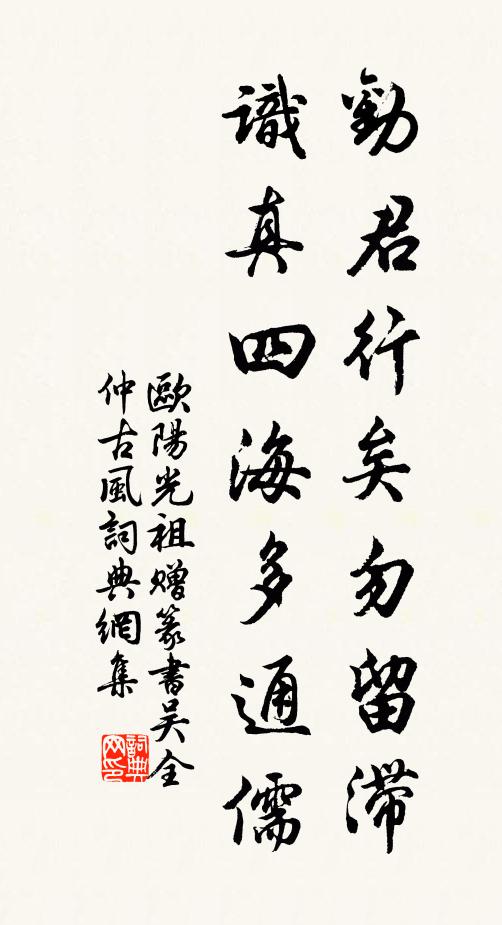 勸君行矣勿留滯
識真四海多通儒
歐陽光祖贈篆書吳全
仲古風詞典網集
詞典
网印